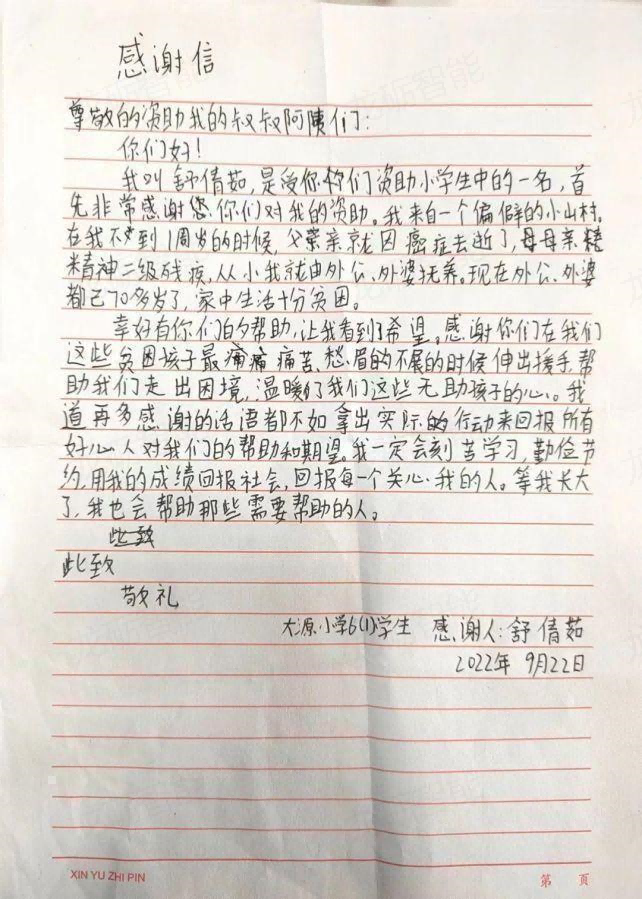 感谢信
尊敬的资助我的叔叔阿姨们:
你们好!
我叫舒倩茹,是受你你们资助小学生中的一名,首
先非常感谢您你们对我的资助。我来自一个偏僻的小山村。
在我不到1周岁的时候,父亲就因癌症去逝了,母母亲精
精神二级残疾,从小我就由外公、外婆抚养。现在外公、外婆
都已70多岁了,家中生活十分贫困。
幸好有你们的帮助,让我看到了希望。感谢你们在我们
这些贫困孩子最痛痛痛苦、愁眉的不展的时候伸出援手,帮
助我们走出困境,温暖了我们这些无助孩子的心。我
道再多感谢的话语都不如拿出实际的行动来回报所有
好心人对我们的帮助和期望。我一定会刻苦学习,勤俭节
约,用我的成绩回报社会,回报每一个关心我的人。等我长大
了,我也会帮助那些需要帮助的人。
此致
此致
敬礼
大源小学6(1)学生 感谢人:舒倩茹
2022年9月22日
XIN YU ZHI PIN 第 页